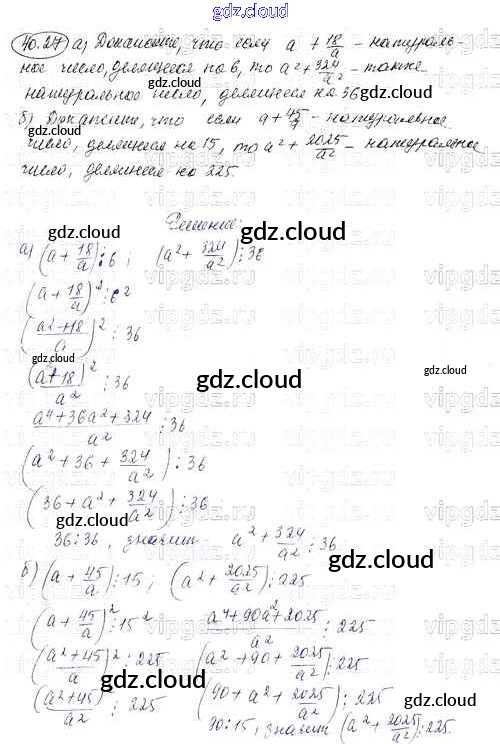 gdz.cloud
40.27 а) Докажите, что если a + 18/a – натураль-
ное число, делящееся на 6, то a² + 324/a² – также
натуральное число, делящееся на 36
б) Докажите, что если a + 45/a – натуральное
число, делящееся на 15, то a² + 2025/a² – натуральное
число, делящееся на 225.
Решение:
gdz.cloud
gdz.cloud
а) (a + 18/a) ⋮ 6 ; (a² + 324/a²) ⋮ 36
(a + 18/a)² ⋮ 6²
((a² + 18)/a)² ⋮ 36
gdz.cloud
gdz.cloud
(a² + 18)²/a² ⋮ 36
gdz.cloud
(a⁴ + 36a² + 324)/a² ⋮ 36
(a² + 36 + 324/a²) ⋮ 36
(36 + a² + 324/a²) ⋮ 36
gdz.cloud
36 ⋮ 36, значит a² + 324/a² ⋮ 36
gdz.cloud
б) (a + 45/a) ⋮ 15 ; (a² + 2025/a²) ⋮ 225
gdz.cloud
(a + 45/a)² ⋮ 15² (a⁴ + 90a² + 2025)/a² ⋮ 225
((a² + 45)/a)² ⋮ 225 (a² + 90 + 2025/a²) ⋮ 225
gdz.cloud
(a² + 45)²/a² ⋮ 225 (90 + a² + 2025/a²) ⋮ 225
gdz.cloud
90 ⋮ 15, значит (a² + 2025/a²) ⋮ 225.
gdz.cloud